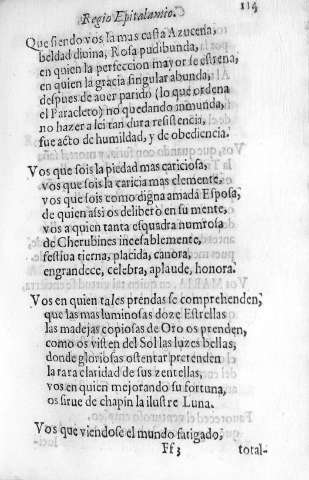 Regio Epitalamio. 114
Que siendo vos la mas casta Azucena,
beldad diuina, Rosa pudibunda,
en quien la perfeccion mayor se estrena,
en quien la gracia singular abunda,
despues de auer parido (lo que ordena
el Paracleto) no quedando inmunda,
no hazer a lei tan dura resistencia,
fue acto de humildad, y de obediencia.
Vos que sois la piedad mas cariciosa,
vos que sois la caricia mas clemente,
vos que sois como digna amada Esposa,
de quien assi os deliberò en su mente,
vos a quien tanta esquadra numrosa
de Cherubines incesablemente,
festiua tierna, placida, canora,
engrandece, celebra, aplaude, honora.
Vos en quien tales prendas se comprehenden,
que las mas luminosas doze Estrellas
las madejas copiosas de Oro os prenden,
como os visten del Sol las luzes bellas,
donde gloriosas ostentar pretenden
la rara claridad de sus zentellas,
vos en quien mejorando su fortuna,
os sirue de chapin la ilustre Luna.
Vos que viendose el mundo fatigado,
Ff3 total-